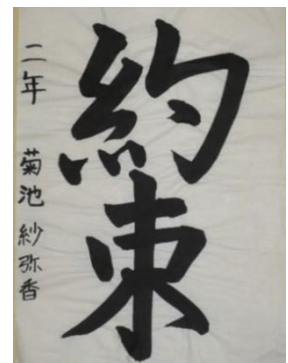 約束
二年 菊池紗弥香